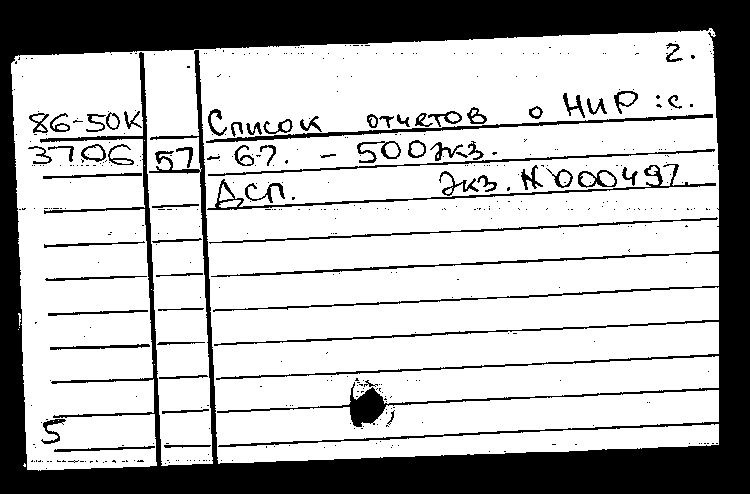 2.
86-50К Список отчетов о НИР : с.
3706 57 - 67. - 500 экз.
ДСП. Экз. № 000497.
5